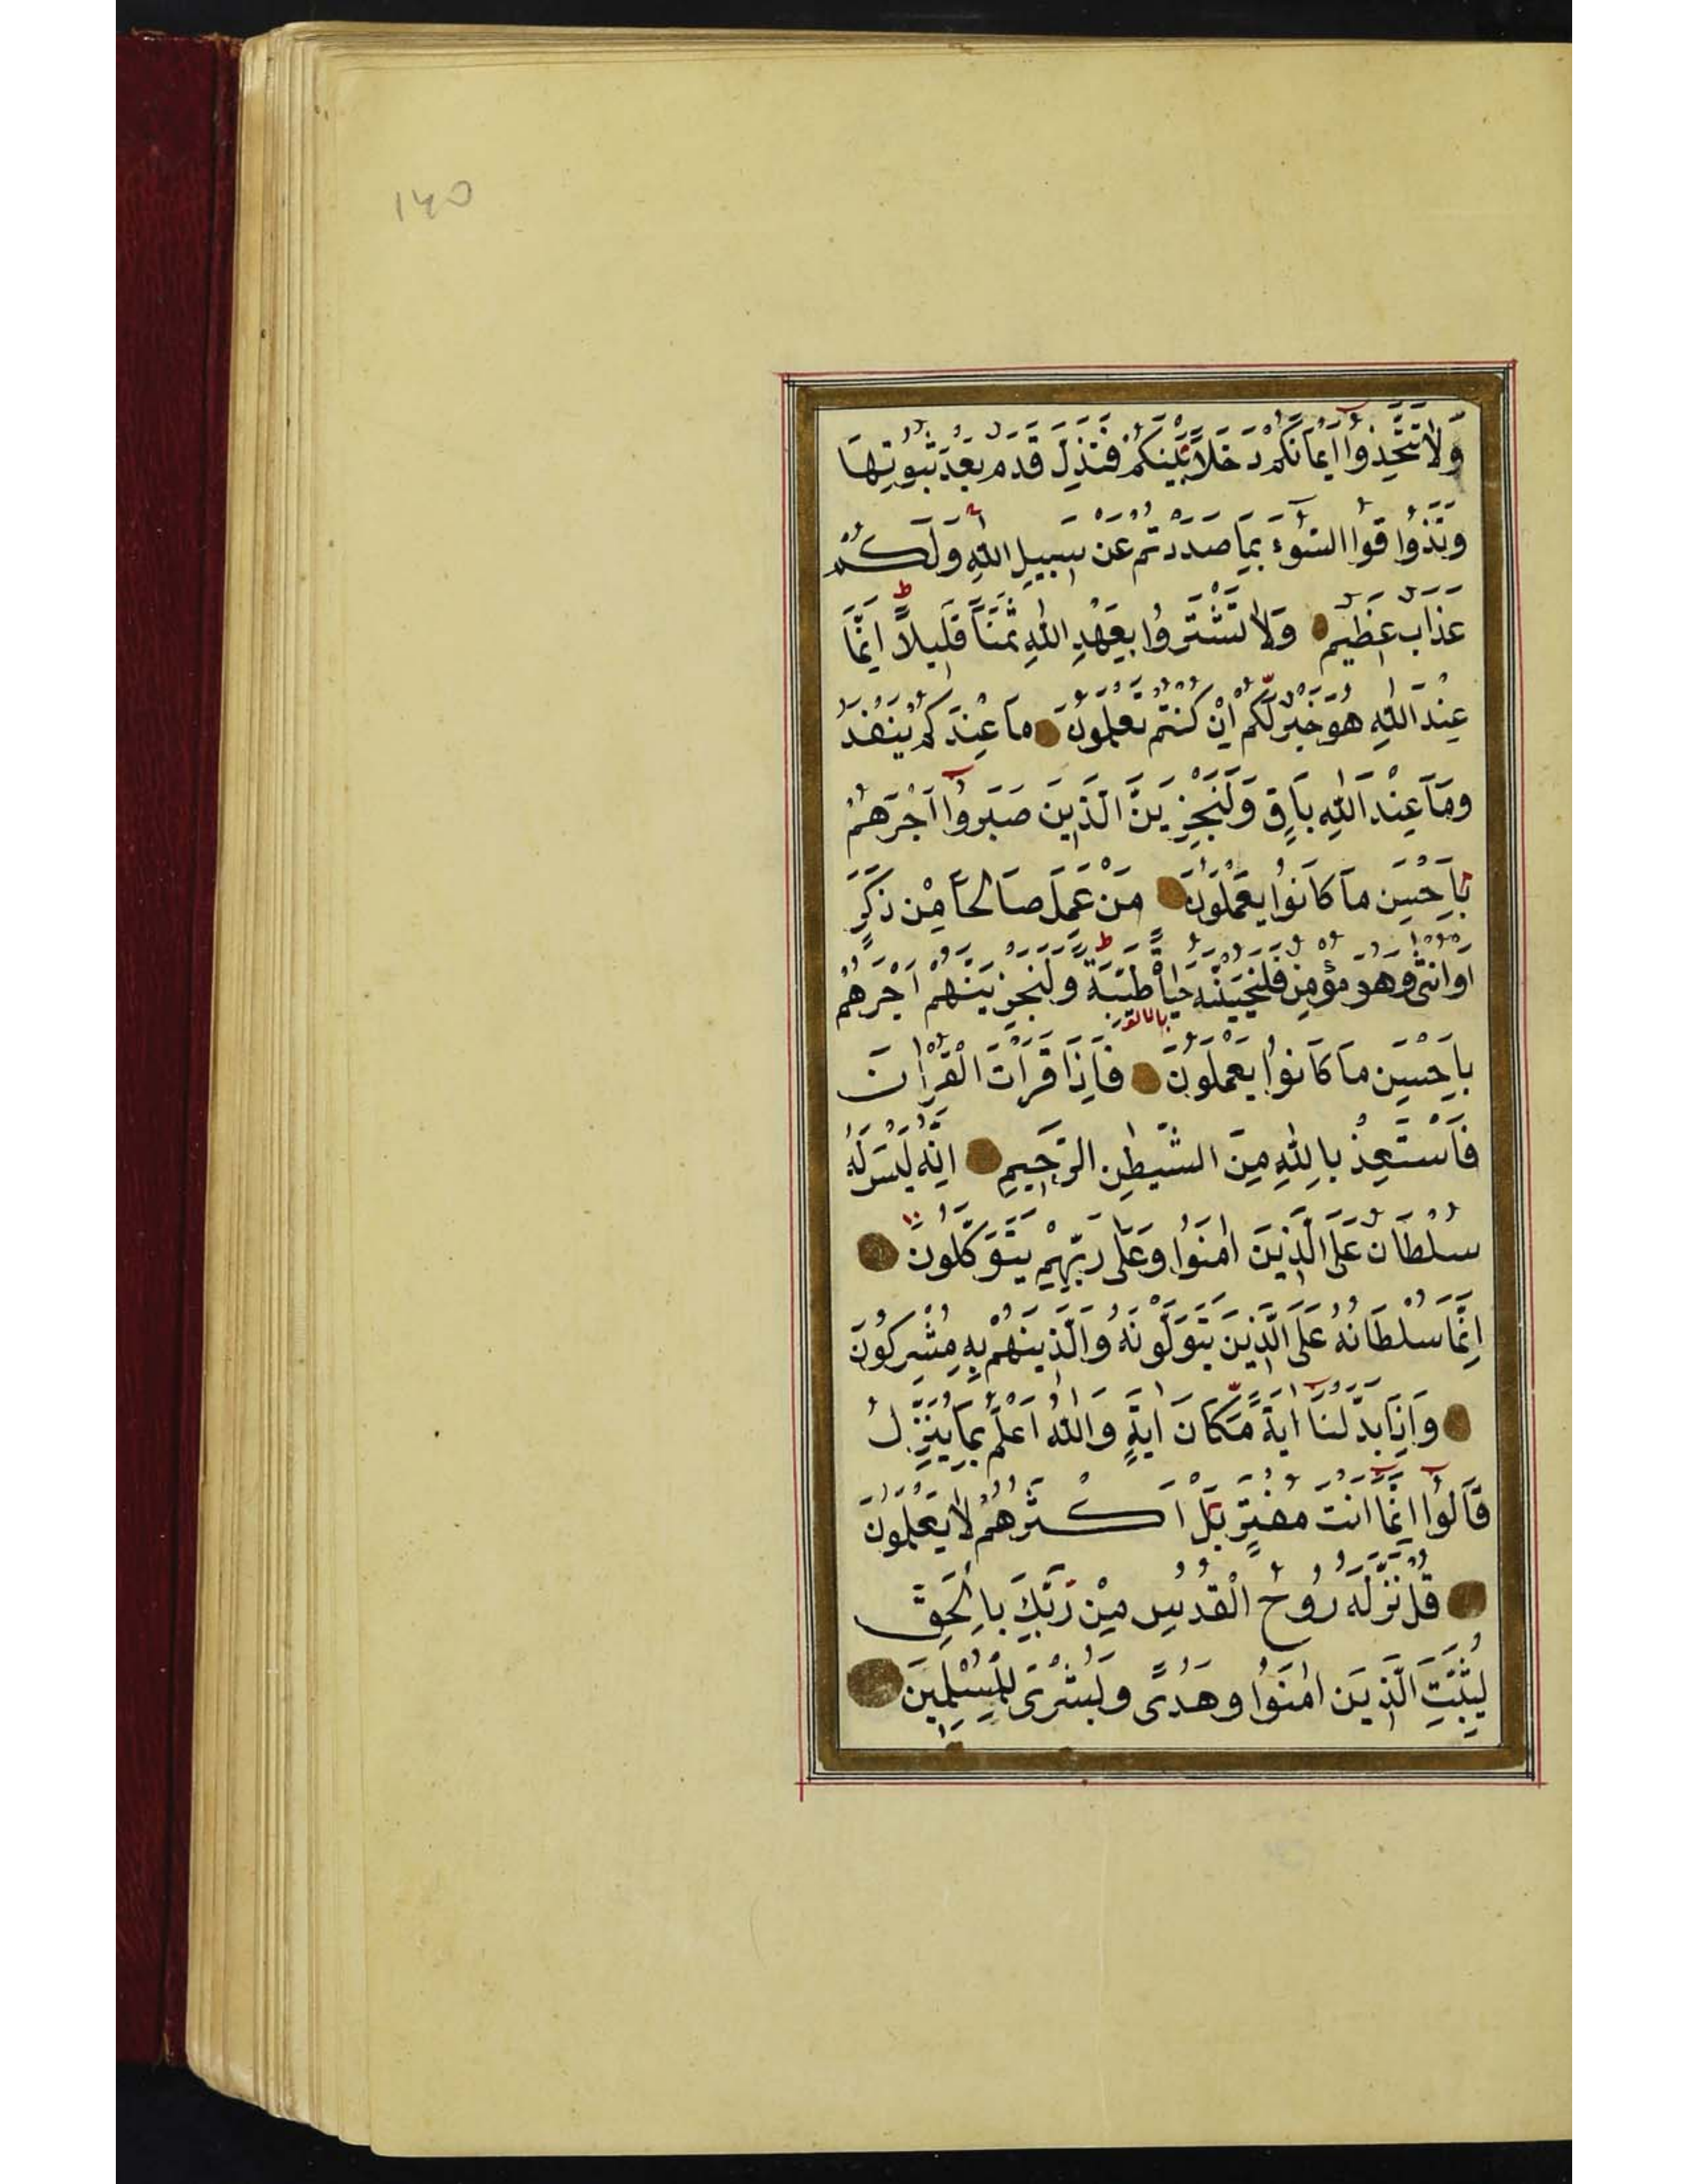 ۱۴۵
وَلَا تَتَّخِذُوا اَيْمَانَكُمْ دَخَلاً بَيْنَكُمْ فَتَزِلَّ قَدَمٌ بَعْدَ ثُبُوتِهَا
وَتَذُوقُوا السُّوۤءَ بِمَا صَدَدْتُمْ عَنْ سَبِيلِ اللّٰهِ وَلَكُمْ
عَذَابٌ عَظِيمٌ وَلَا تَشْتَرُوا بِعَهْدِ اللّٰهِ ثَمَنًا قَلِيلاً اِنَّمَا
عِنْدَ اللّٰهِ هُوَ خَيْرٌ لَّكُمْ اِنْ كُنْتُمْ تَعْلَمُونَ مَا عِنْدَكُمْ يَنْفَدُ
وَمَا عِنْدَ اللّٰهِ بَاقٍ وَلَنَجْزِيَنَّ الَّذِينَ صَبَرُوا اَجْرَهُمْ
بِاَحْسَنِ مَا كَانُوا يَعْمَلُونَ مَنْ عَمِلَ صَالِحًا مِنْ ذَكَرٍ
اَوْ اُنْثٰى وَهُوَ مُؤْمِنٌ فَلَنُحْيِيَنَّهُ حَيٰاةً طَيِّبَةً وَلَنَجْزِيَنَّهُمْ اَجْرَهُمْ
بِاَحْسَنِ مَا كَانُوا يَعْمَلُونَ فَاِذَا قَرَاْتَ الْقُرْاٰنَ
فَاسْتَعِذْ بِاللّٰهِ مِنَ الشَّيْطٰنِ الرَّجِيمِ اِنَّهُ لَيْسَ لَهُ
سُلْطَانٌ عَلَى الَّذِينَ اٰمَنُوا وَعَلٰى رَبِّهِمْ يَتَوَكَّلُونَ
اِنَّمَا سُلْطَانُهُ عَلَى الَّذِينَ يَتَوَلَّوْنَهُ وَالَّذِينَ هُمْ بِهِ مُشْرِكُونَ
وَاِذَا بَدَّلْنَا اٰيَةً مَّكَانَ اٰيَةٍ وَاللّٰهُ اَعْلَمُ بِمَا يُنَزِّلُ
قَالُوا اِنَّمَا اَنْتَ مُفْتَرٍ بَلْ اَكْثَرُهُمْ لَا يَعْلَمُونَ
قُلْ نَزَّلَهُ رُوحُ الْقُدُسِ مِنْ رَّبِّكَ بِالْحَقِّ
لِيُثَبِّتَ الَّذِينَ اٰمَنُوا وَهُدًى وَبُشْرٰى لِلْمُسْلِمِينَ